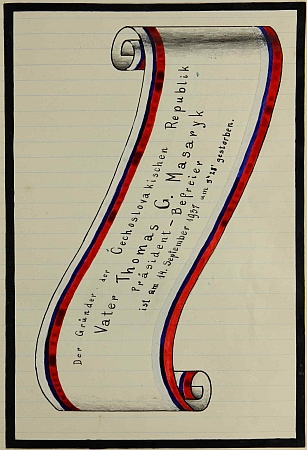 Der Gründer der Čechoslovakischen Republik
Vater Thomas G. Masaryk
Präsident-Befreier
ist am 14. September 1937 um 3ʰ29ⁱ gestorben.